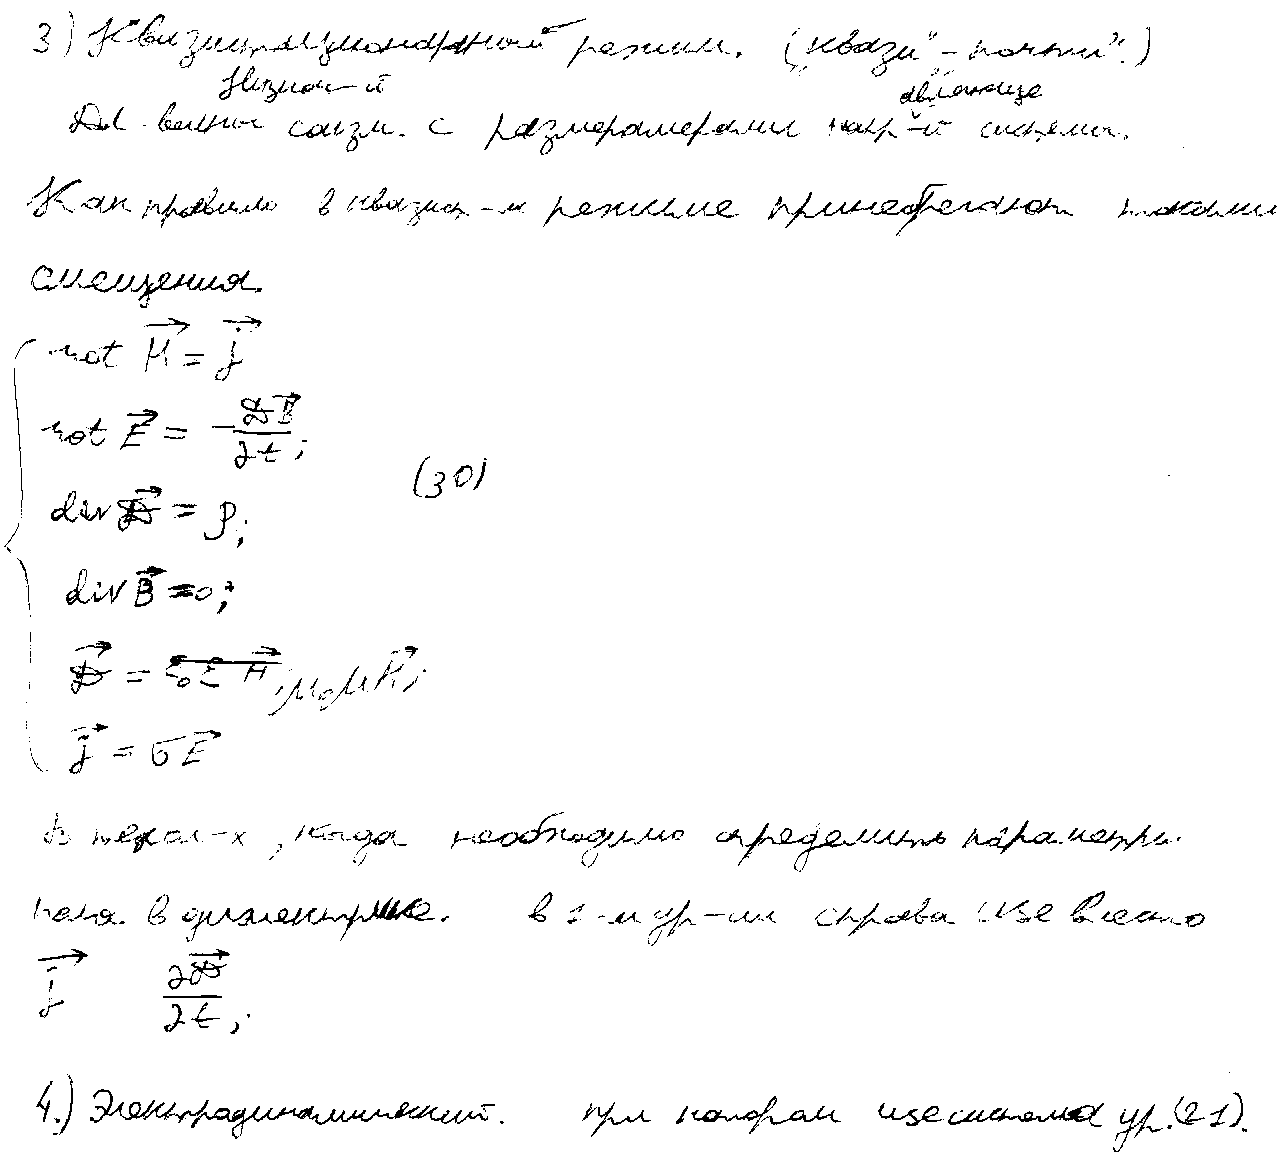 3) Квазистационарный режим. („квази" - „почти".)
Дл. волны соизм. с размерамерами системы.
Как правило в квазист-м режиме принебрегают токами
смещения.
rot H⃗ = j⃗
rot E⃗ = -∂B⃗/∂t;
div D⃗ = ρ;
(30)
div B⃗ = 0;
D⃗ = ε₀ε H⃗; μ₀μH⃗;
j⃗ = σE⃗
В тех сл-х, когда необходимо определить параметры
поля в диэлектрике. в 1-м ур-ии справа исе вместо
j⃗ ∂D⃗/∂t;
4.) Электродинамический. при котором исе система ур.(21).